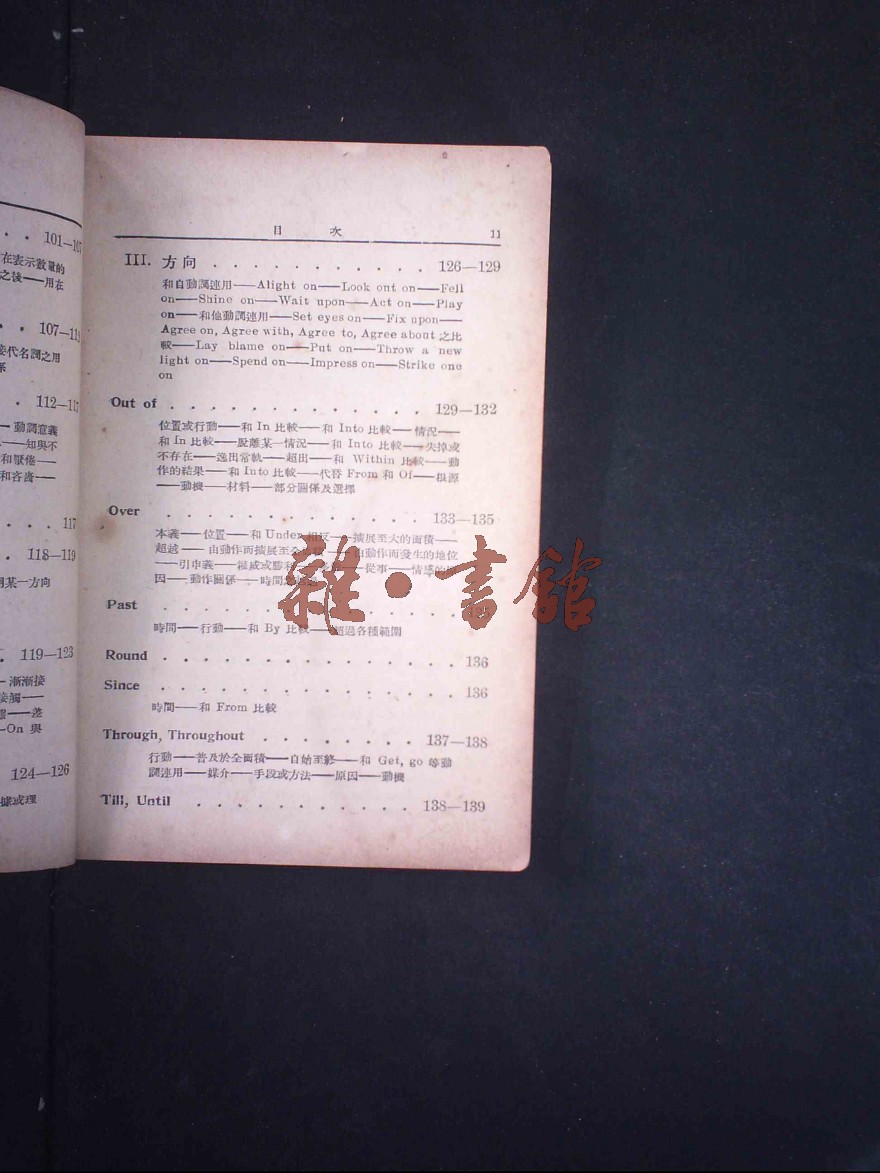 101—107
在表示數量的
之後——用在
107—11
接代名詞之用
係
112—11
—動詞意義
——知與不
和厭倦—
和吝嗇—
117
118—119
用某一方向
119—123
—漸漸接
接觸——
—差
—On 與
124—126
據或理
目 次 11
III. 方向 . . . . . . . . . . . 126—129
和自動詞連用——Alight on——Look out on——Fell
on——Shine on——Wait upon——Act on——Play
on——和他動詞連用——Set eyes on——Fix upon——
Agree on, Agree with, Agree to, Agree about 之比
較——Lay blame on——Put on——Throw a new
light on——Spend on——Impress on——Strike one
on
Out of . . . . . . . . . . . . 129—132
位置或行動——和 In 比較——和 Into 比較——情況——
和 In 比較——脫離某一情況——和 Into 比較——失掉或
不存在——逸出常軌——超出——和 Within 比較——動
作的結果——和 Into 比較——代替 From 和 Of——根源
——動機——材料——部分關係及選擇
Over . . . . . . . . . . . . 133—135
本義——位置——和 Under 相反——擴展至大的面積——
超越——由動作而擴展至全面積——由動作而發生的地位
——引申義——權威或勝利——從事——情感的原
因——動作關係——時間
Past . . . . . . . . . . . .
時間——行動——和 By 比較——超過各種範圍
Round . . . . . . . . . . . . 136
Since . . . . . . . . . . . . 136
時間——和 From 比較
Through, Throughout . . . . . . . . 137—138
行動——普及於全面積——自始至終——和 Get, go 等動
詞連用——媒介——手段或方法——原因——動機
Till, Until . . . . . . . . . . . 138—139
雜·書館